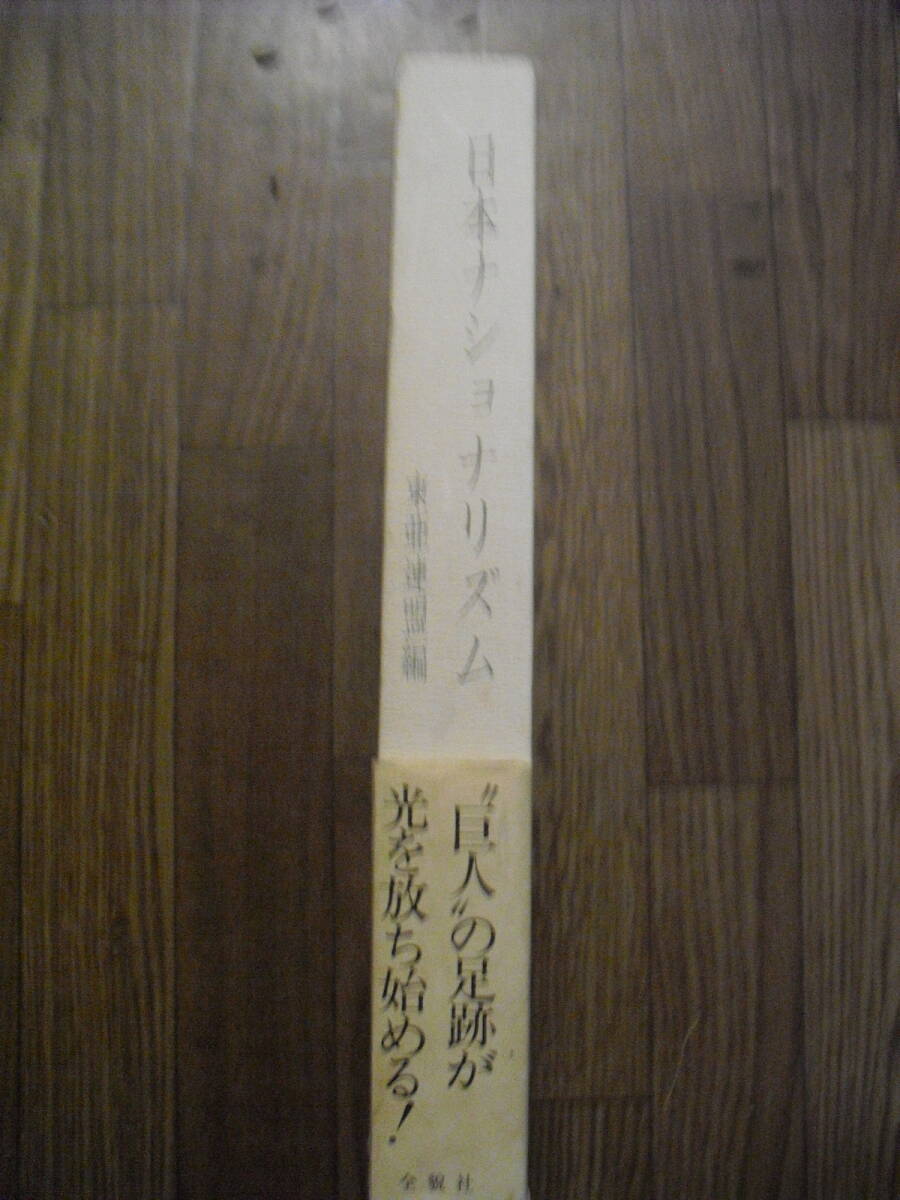 日本ナショナリズム
東亜連盟編
〝巨人〟の足跡が
光を放ち始める!
全貌社